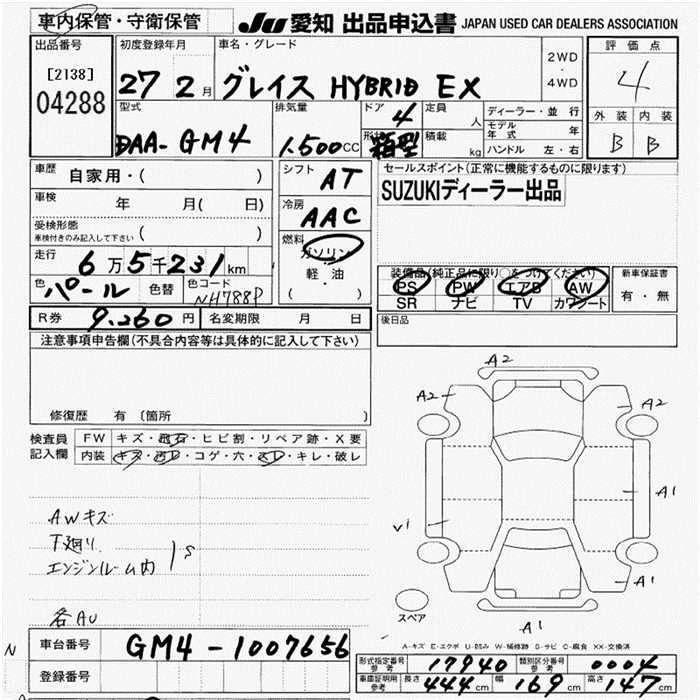 車内保管・守衛保管
Ju 愛知 出品申込書 JAPAN USED CAR DEALERS ASSOCIATION
出品番号
[2138]
04288
初度登録年月
27 2 月
車名・グレード
グレイス HYBRID EX
2WD
・
4WD
評価点
4
外装 内装
B B
型式
DAA- GM4
排気量
1.500 CC
ドア
4
形状
箱型
定員
人
積載
kg
ディーラー・並行
モデル年式 年
ハンドル 左・右
車歴
自家用・( )
車検
年 月( 日)
受検形態
車検付きのみ記入して下さい ( )
走行
6万5千231km
色
パール
色替
色コード
NH788P
シフト
AT
冷房
AAC
燃料
ガソリン
・
軽油
( )
セールスポイント(正常に機能するものに限ります)
SUZUKIディーラー出品
装備品(純正品に限り○をつけてください)
PS PW エアB AW
SR ナビ TV カワシート
新車保証書
有・無
R券 9.260円 名変期限 月 日
後日品
注意事項申告欄(不具合内容等は具体的に記入して下さい)
修復歴 有 〔箇所 〕
検査員 FW キズ・飛石・ヒビ割・リペア跡・X要
記入欄 内装 キズ・汚レ・コゲ・穴・スレ・キレ・破レ
AWキズ
下廻り
エンジンルーム内
S
各AU
A2
A2
A2
A1
V1
A1
A1
スペア
A-キズ E-エクボ U-凹み W-補修跡 S-サビ C-腐食 XX-交換済
N
車台番号 GM4-1007656
登録番号
形式指定番号 参考 17940 類別区分番号 参考 0004
車庫証明用 参考 長さ 444cm 幅 169cm 高さ 147cm